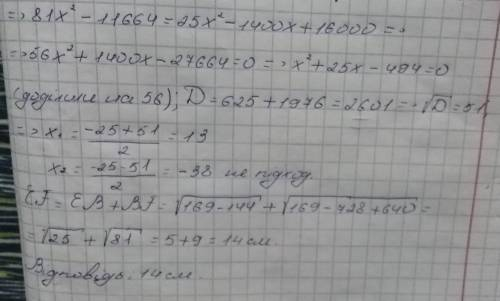 => 81x² - 11664 = 25x² - 1400x + 16000 =>
=> 56x² + 1400x - 27664 = 0 => x² + 25x - 494 = 0
на 56); D = 625 + 1976 = 2601 => √D = 51
=> x₁ = (-25+51)/2 = 13
x₂ = (-25-51)/2 = -38 не подход.
EF = EB + BF = √(169-144) + √(169-728+640) =
= √25 + √81 = 5 + 9 = 14 см.
Відповідь: 14 см.